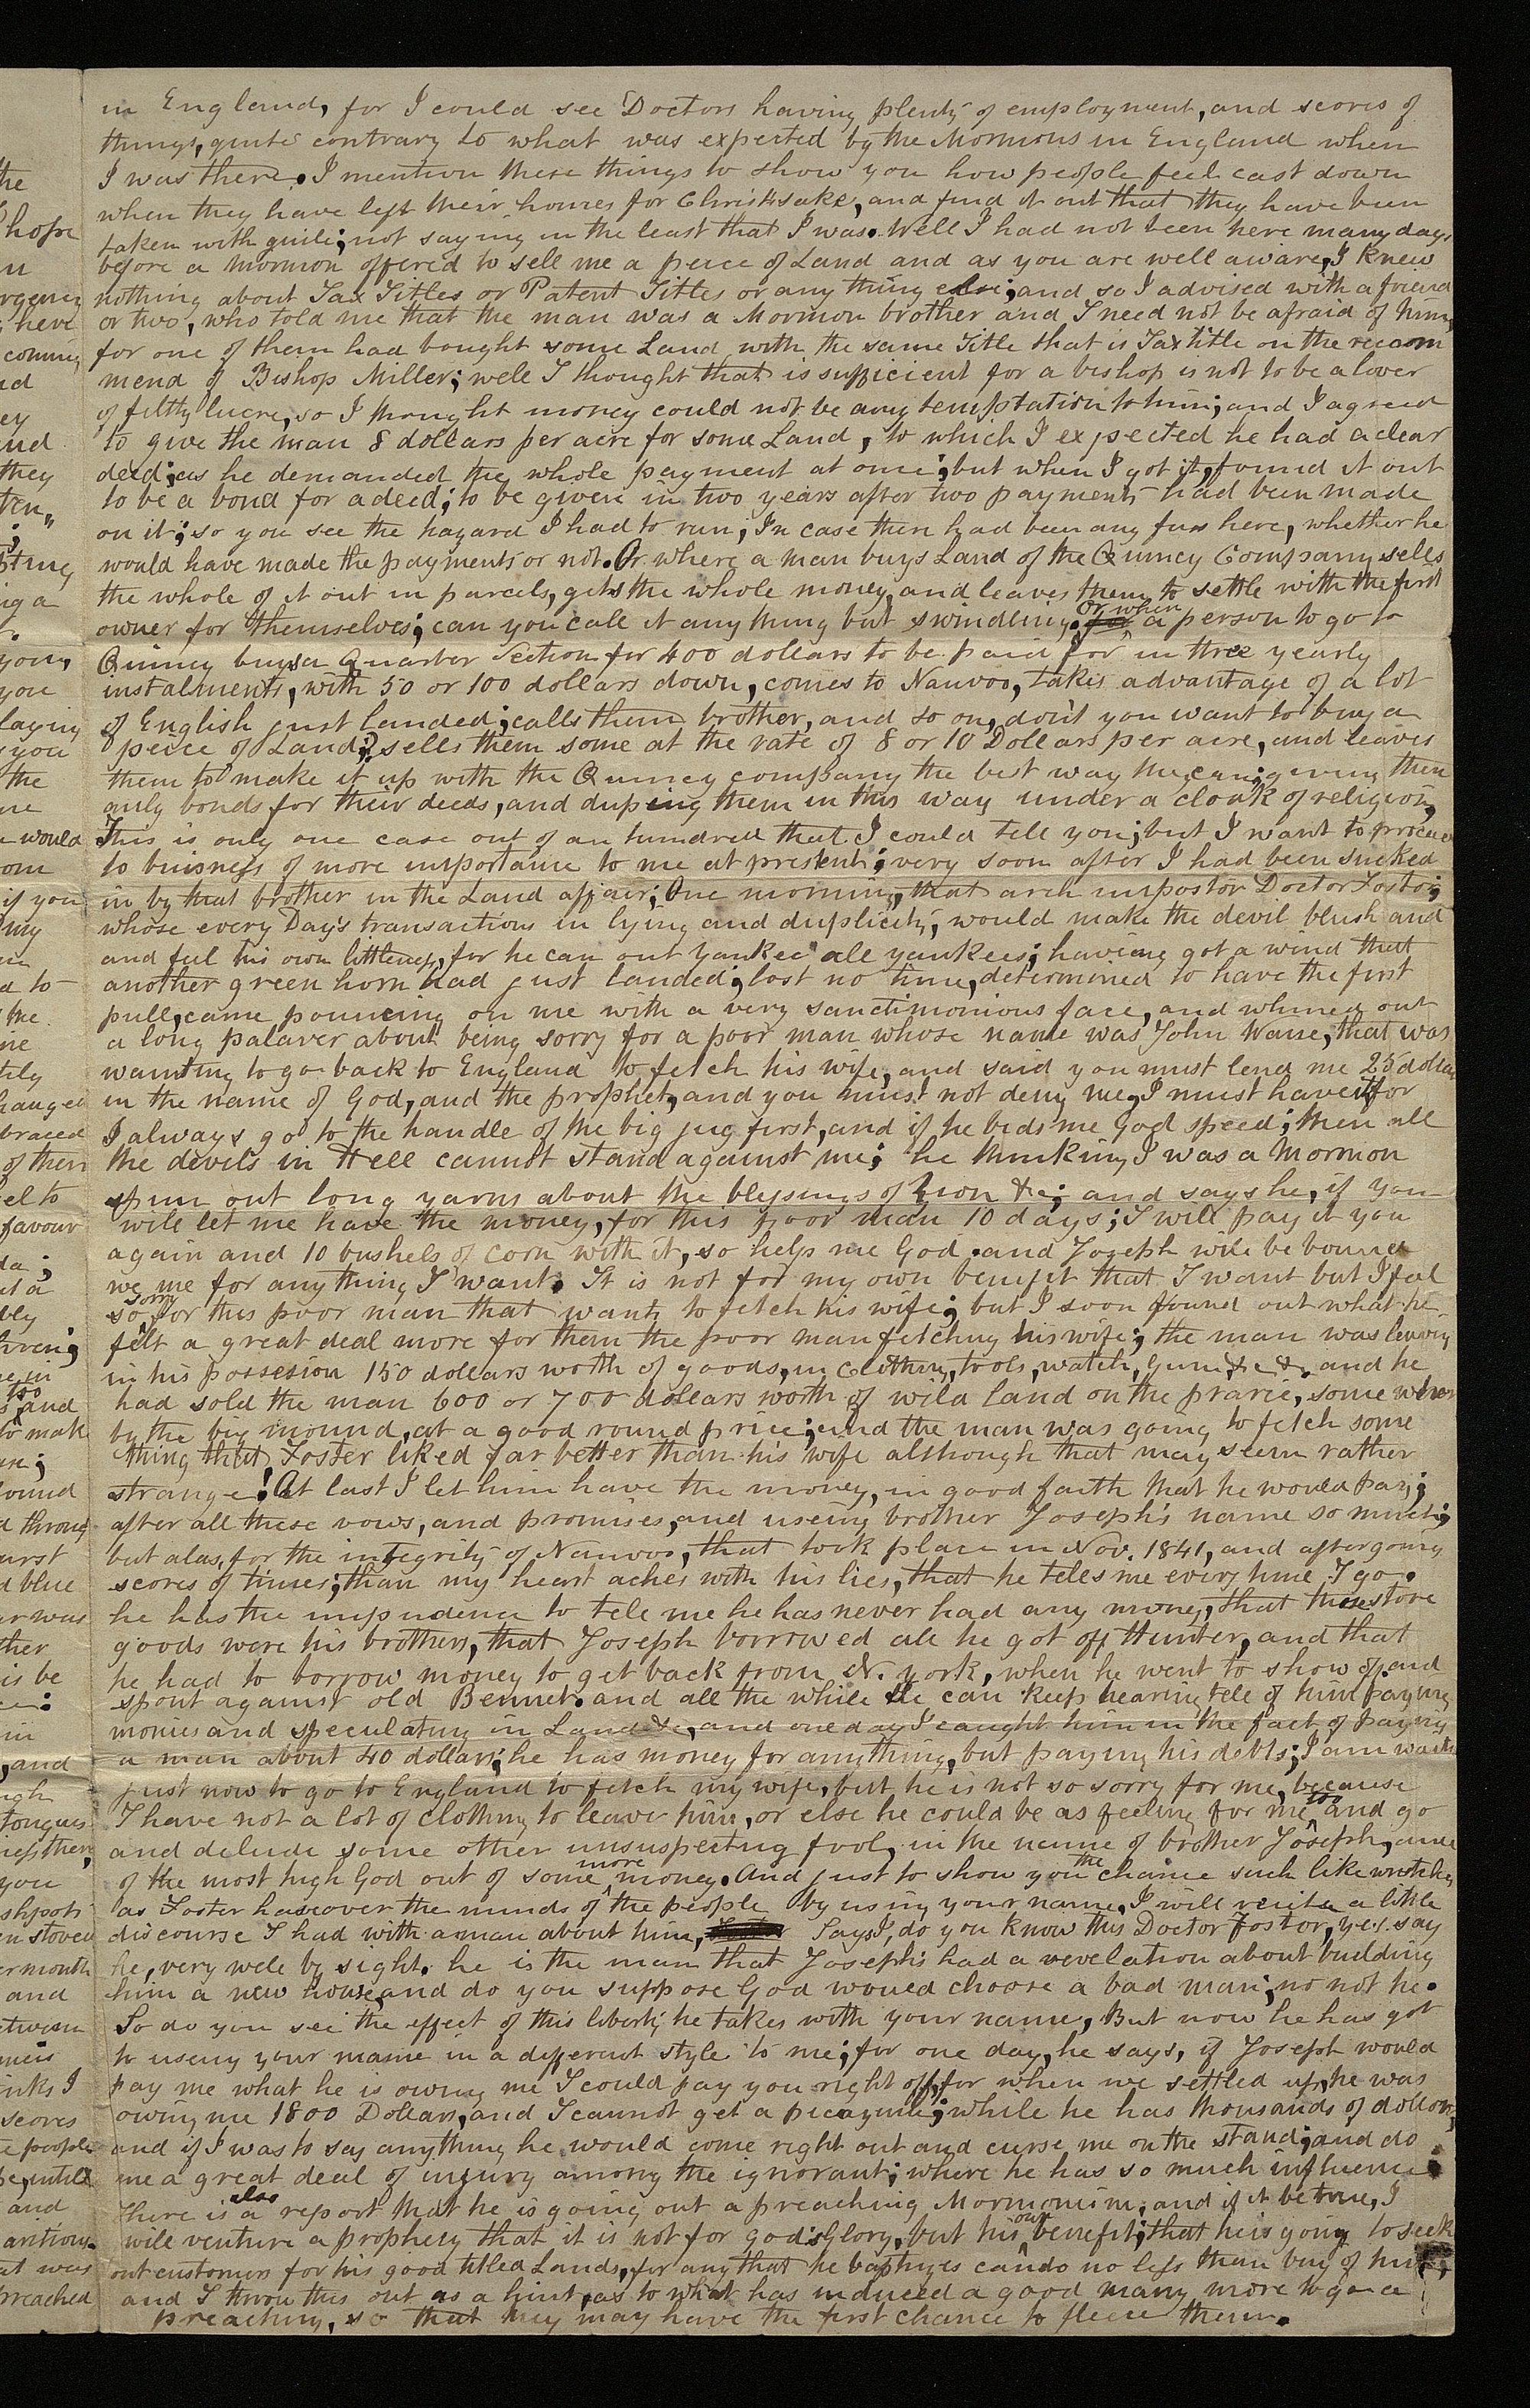 the
hope
n
rgency
here
coming
nd
ey
nd
they
ten,,
;
string
ng a
.
you,
you
laying
you
the
ne
would
om
if you
my
n
a to
the
ne
tily
hanged
braced
of them
el to
favour
da;
ut a
bly
hren;
ne in
s too and
to mak
en;
ound
d throug
urst
d blue
ar was
ther
is be
e:
in
, and
ugh
tongues
ness then,
you
shpots
en stoved
er month
and
etween
meis
inks I
scores
e people
be, untill
and
antious.
at was
preached
in England, for I could see Doctors having plenty of employment, and scores of
things, quite contrary to what was expected by the Mormons in England when
I was there. I mention these things to show you how people feel cast down
when they have left their homes for Christ's sake, and find it out that they have been
taken with guile; not saying in the least that I was. Well I had not been here many days
before a Mormon offered to sell me a peice of Land and as you are well aware, I knew
nothing about Tax Titles or Patent Titles or any thing else; and so I advised with a friend
or two, who told me that the man was a Mormon brother and I need not be afraid of him,
for one of them had bought some Land with the same Title that is Tax title on the recom
mend of Bishop Miller; well I thought that is sufficient for a bishop is not to be a lover
of filthy lucre, so I thought money could not be any temptation to him; and I agreed
to give the man 8 dollars per acre for some Land, to which I expected he had a clear
deed; as he demanded the whole payment at once; but when I got it, found it out
to be a bond for a deed; to be given in two years after two payments had been made
on it; so you see the hazard I had to run; In case there had been any fuss here, whether he
would have made the payments or not. Or where a man buys Land of the Quincy Company sells
the whole of it out in parcels, gets the whole money, and leaves them to settle with the first
owner for themselves; can you call it any thing but swindling. for Or when a person to go to
Quincy buys a Quarter Section for 400 dollars to be paid for in three yearly
instalments, with 50 or 100 dollars down, comes to Nauvoo, takes advantage of a lot
of English just landed; calls them brother, and so on, don't you want to buy a
peice of Land? sells them some at the rate of 8 or 10 Dollars per acre, and leaves
them to make it up with the Quincy company the best way they can; giving them
only bonds for their deeds, and dupeing them in this way under a cloak of religion,
This is only one case out of an hundred that I could tell you; but I want to proceed
to buisness of more importance to me at present; very soon after I had been sucked
in by that brother in the Land affair; One morning, that arch impostor Doctor Foster;
whose every Day's transactions in lying and duplicity, would make the devil blush and
and feel his own littleness, for he can out yankee all yankees; having got a wind that
another green horn had just landed; lost no time, determined to have the first
pull, came pouncing on me with a very sanctimonious face, and whined out
a long palaver about being sorry for a poor man whose name was John Waine, that was
wanting to go back to England to fetch his wife, and said you must lend me 25 dollars
in the name of God, and the prophet, and you must not deny me, I must have it, for
I always go to the handle of the big jug first, and if he bids me God speed; then all
the devils in Hell cannot stand against me; he thinking I was a Mormon
spun out long yarns about the blessings of Zion &c; and says he, if you
will let me have the money, for this poor man 10 days; I will pay it you
again and 10 bushels of corn with it, so help me God. and Joseph will be bound
we me for any thing I want. It is not for my own benefit that I want but I feel
so sorry for this poor man that wants to fetch his wife; but I soon found out what he
felt a great deal more for them the poor man fetching his wife; the man was leaving
in his possesion 150 dollars worth of goods, in Clothing, tools, watch, Gun, &c &c. and he
had sold the man 600 or 700 dollars worth of wild land on the prarie, some where
by the big mound, at a good round price; and the man was going to fetch some
thing that Foster liked far better than his wife although that may seem rather
strange! At last I let him have the money, in good faith that he would pay;
after all these vows, and promises, and useing brother Joseph's name so much;
but alas, for the integrity of Nauvoo, that took place in Nov. 1841, and after going
scores of times; than my heart aches with his lies, that he teles me every time I go.
he has the impudence to tele me he has never had any money, that those store
goods were his brothers, that Joseph borrowed all he got off Hunter, and that
he had to borrow money to get back from N. york, when he went to show off and
spout against old Bennet. and all the while he can keep hearing tele of him paying
monies and speculating in Land &c, and one day I caught him in the fact of paying
a man about 40 dollars; he has money for anything, but paying his debts; I am wanting
just now to go to England to fetch my wife, but he is not so sorry for me, because
I have not a lot of clothing to leave him, or else he could be as feeling for me too and go
and delude some other unsuspecting fool, in the name of brother Joseph, and
of the most high God out of some more money. And just to show you the chance such like wretches
as Foster has over the minds of the people by using your name, I will recite a little
discourse I had with a man about him, Says I, do you know this Doctor Foster, yes say
he, very well by sight. he is the man that Joseph's had a revelation about building
him a new house, and do you suppose God would choose a bad man; no not he.
So do you see the effect of this liberty he takes with your name, But now he has got
to useing your name in a different style to me; for one day, he says, if Joseph would
pay me what he is owing me I could pay you right off, for when we settled up, he was
owing me 1800 Dollars, and I cannot get a picayune; while he has thousands of dollars,
and if I was to say anything he would come right out and curse me on the stand; and do
me a great deal of injury among the ignorant; where he has so much influence.
There is also a report that he is going out a preaching Mormonism; and if it be true, I
will venture a prophecy that it is not for god's Glory, but his own benefit; that he is going to seek
out customers for his good titled Lands, for any that he baptizes can do no less than buy of him;
and I throw this out as a hint, as to what has induced a good many more to go a
preaching, so that they may have the first chance to fleece them.